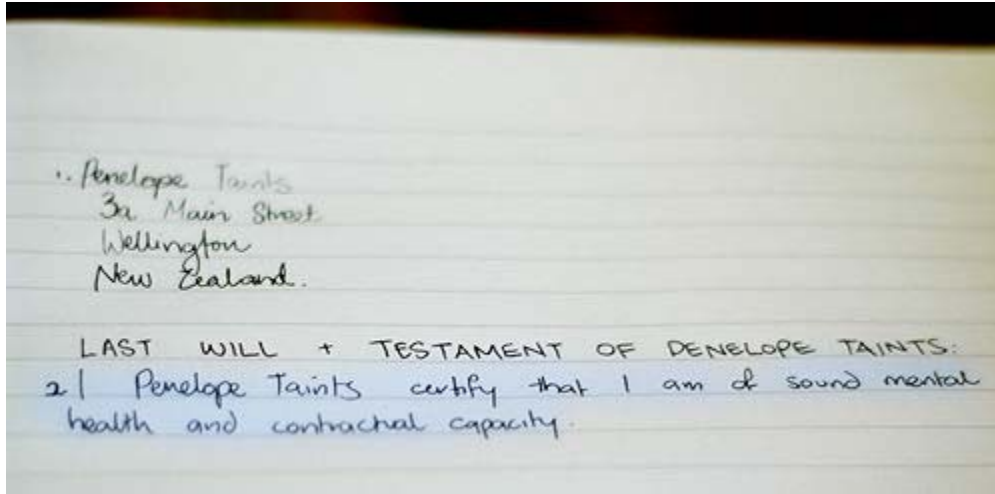 1. Penelope Taints
3a Main Street
Wellington
New Zealand.
LAST WILL + TESTAMENT OF PENELOPE TAINTS:
2 I Penelope Taints certify that I am of sound mental
health and contractual capacity.